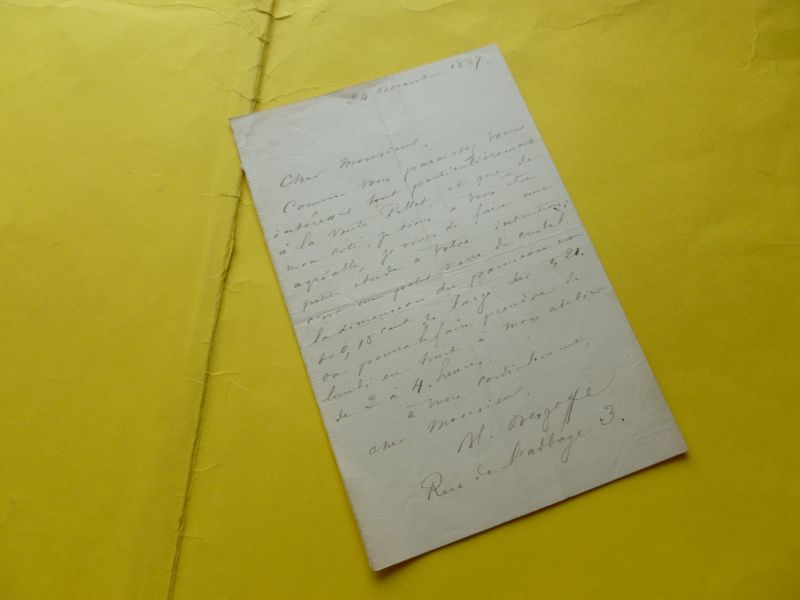 24 Décembre 1887.
Cher Monsieur,
Comme vous paraissez vous
intéresser tout particulièrement
à la vente Pillet et que de
mon coté, je tiens à vous être
agréable, je viens de faire une
petite étude à votre intention;
c'est un petit verre de cristal.
la dimension du panneau est
de 0,18 cent. de large sur 0,21.
on pourra le faire prendre de
lundi en huit à mon atelier
de 2 à 4 heures.
à vous cordialement,
cher Monsieur,
Bl. Desgoffe
Rue de l'abbaye 3.